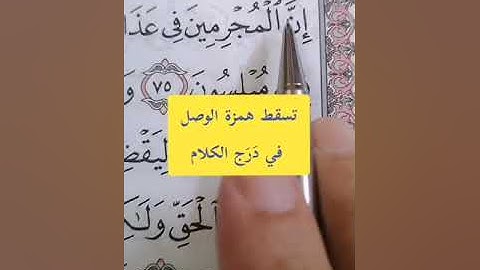 إِنَّ ٱلْمُجْرِمِينَ فِى عَذَا
مُبْلِسُونَ ٧٥ وَ
تسقط همزة الوصل
في دَرَج الكلام
لِيَقْضِ
ٱلْحَقِّ وَلَٰكِ